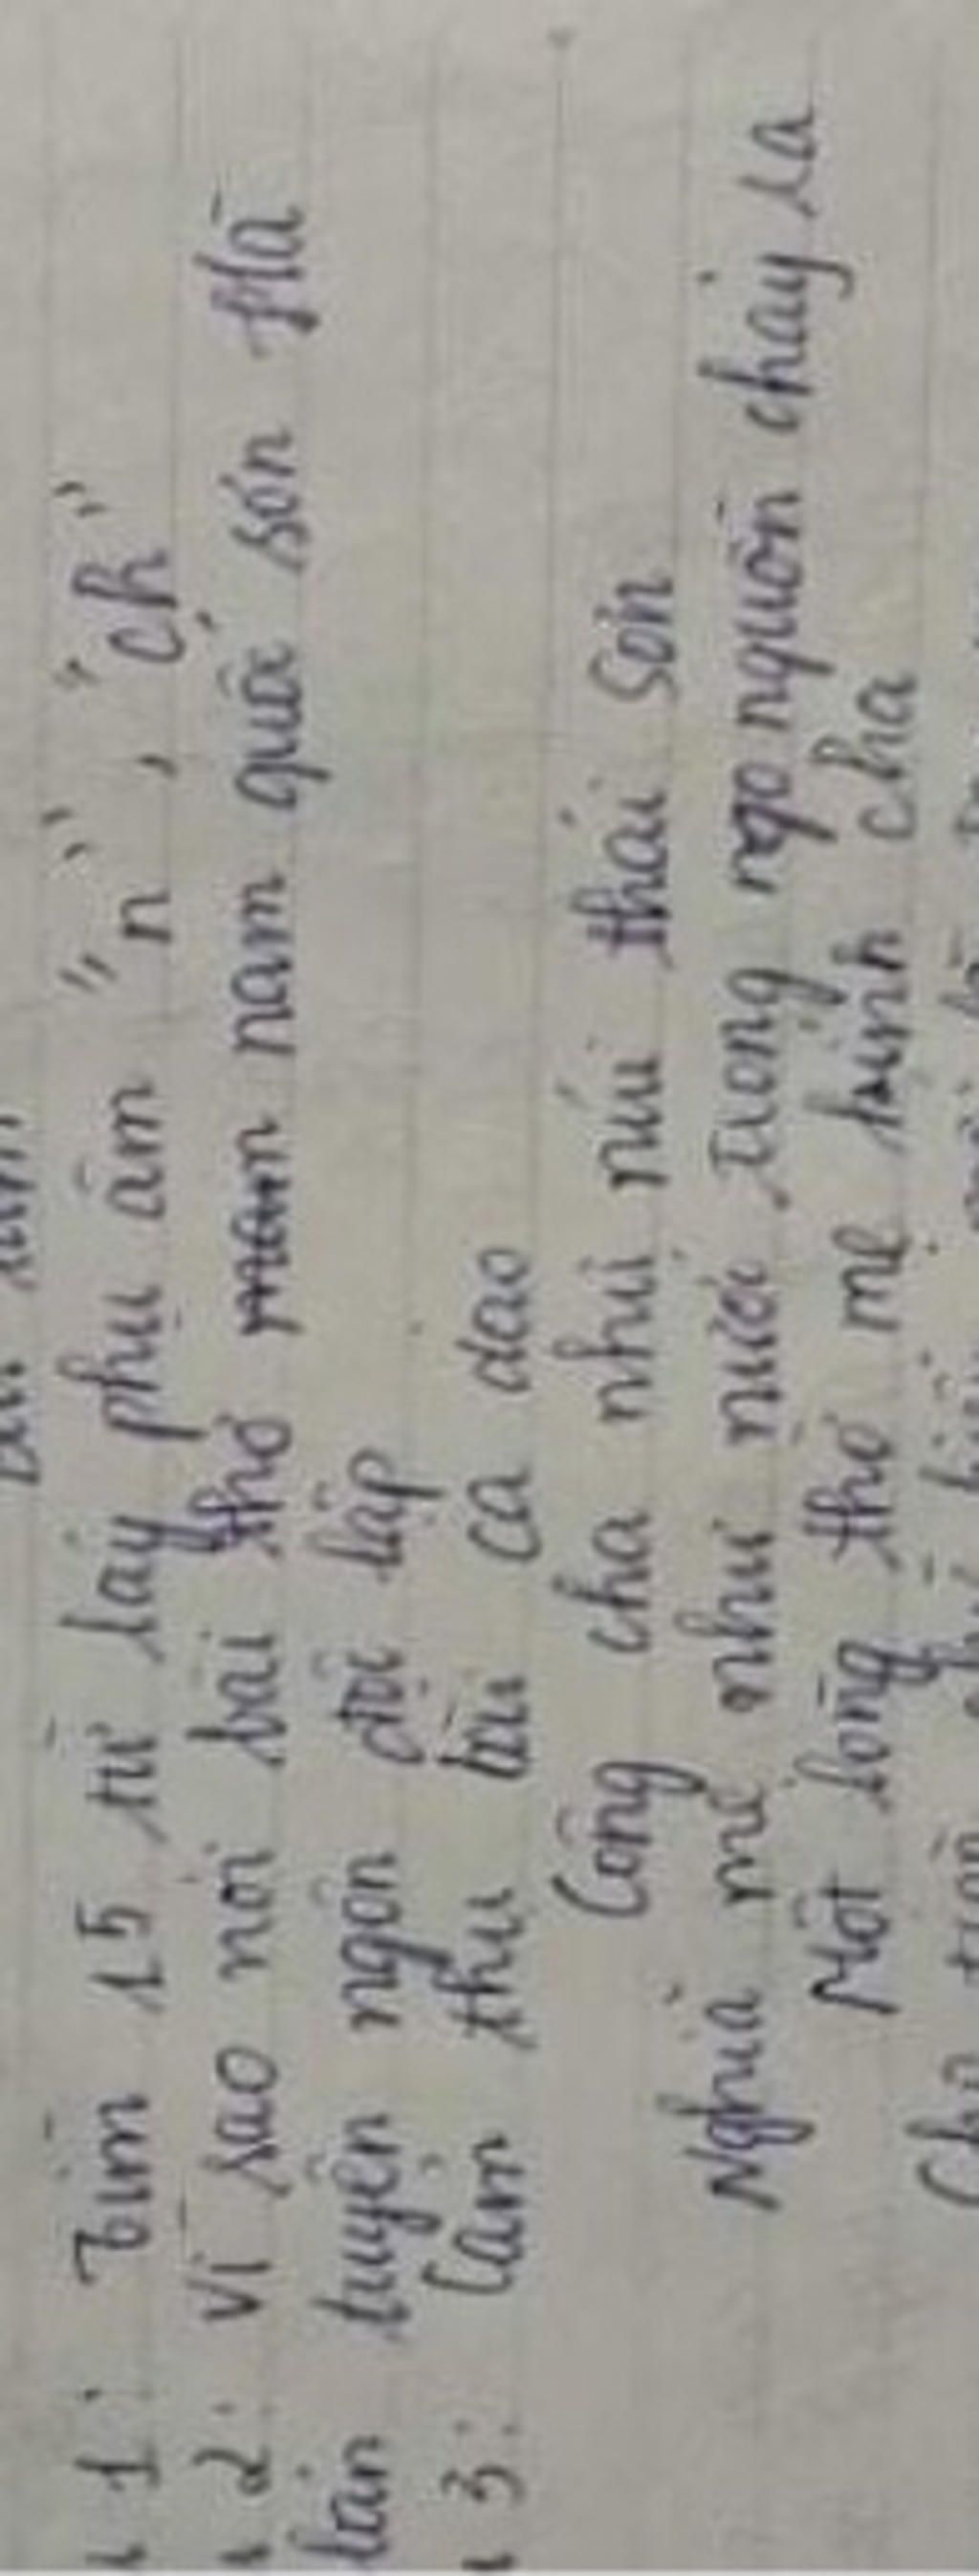 1: Tìm 15 từ láy phụ âm "n", "ch"
2: Vì sao nói bài thơ nam quốc sơn Hà
bản tuyên ngôn độc lập
3: Cảm thụ bài ca dao
Công cha như núi thái Sơn
Nghĩa mẹ như nước trong nguồn chảy ra
Một lòng thờ mẹ kính cha